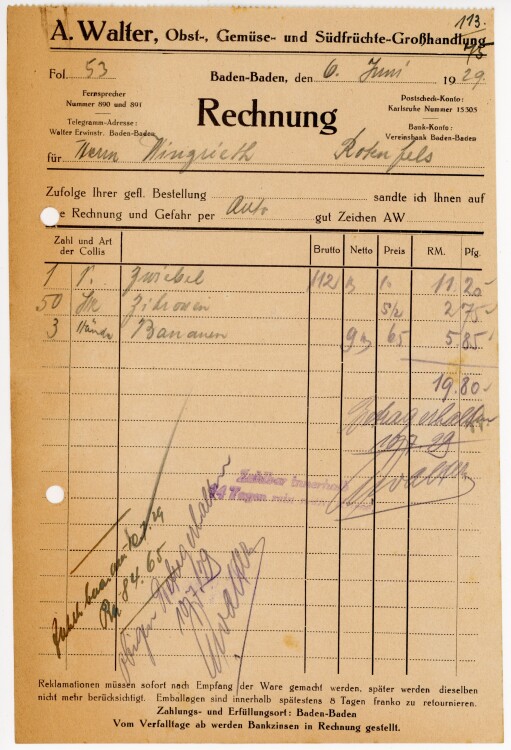 113.
A. Walter, Obst-, Gemüse- und Südfrüchte-Großhandlung
Fol. 53 Baden-Baden, den 6. Juni 1929
Fernsprecher
Nummer 890 und 891
Telegramm-Adresse:
Walter Erwinstr. Baden-Baden
Rechnung
Postscheck-Konto:
Karlsruhe Nummer 15305
Bank-Konto:
Vereinsbank Baden-Baden
für Herrn Rotenfels
Zufolge Ihrer gefl. Bestellung sandte ich Ihnen auf
e Rechnung und Gefahr per Auto gut Zeichen AW
Zahl und Art der Collis Brutto Netto Preis RM. Pfg.
1 Zwiebel 112 11 20
50 Zitronen 5 1/2 2 75
3 Bananen 9 65 5 85
19.80
19.7.29
Zahlbar innerhalb
14 Tagen
84.65
Walter
Reklamationen müssen sofort nach Empfang der Ware gemacht werden, später werden dieselben
nicht mehr berücksichtigt. Emballagen sind innerhalb spätestens 8 Tagen franko zu retournieren.
Zahlungs- und Erfüllungsort: Baden-Baden
Vom Verfalltage ab werden Bankzinsen in Rechnung gestellt.